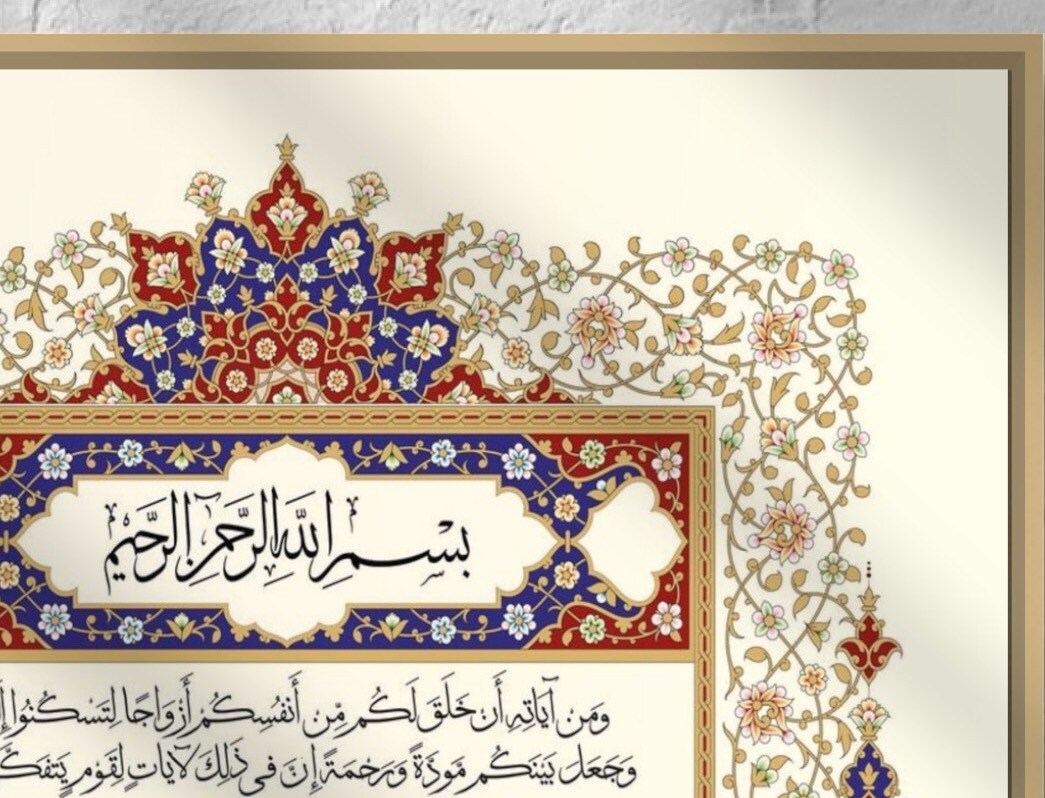 بسم الله الرحمن الرحيم
وَمِن آيَاتِهِ أَن خَلَقَ لَكُم مِّن أَنفُسِكُم أَزوَاجًا لِتَسكُنُوا
وَجَعَلَ بَينَكُم مَّوَدَّةً وَرَحمَةً إِنَّ فِي ذَلِكَ لَآيَاتٍ لِقَومٍ